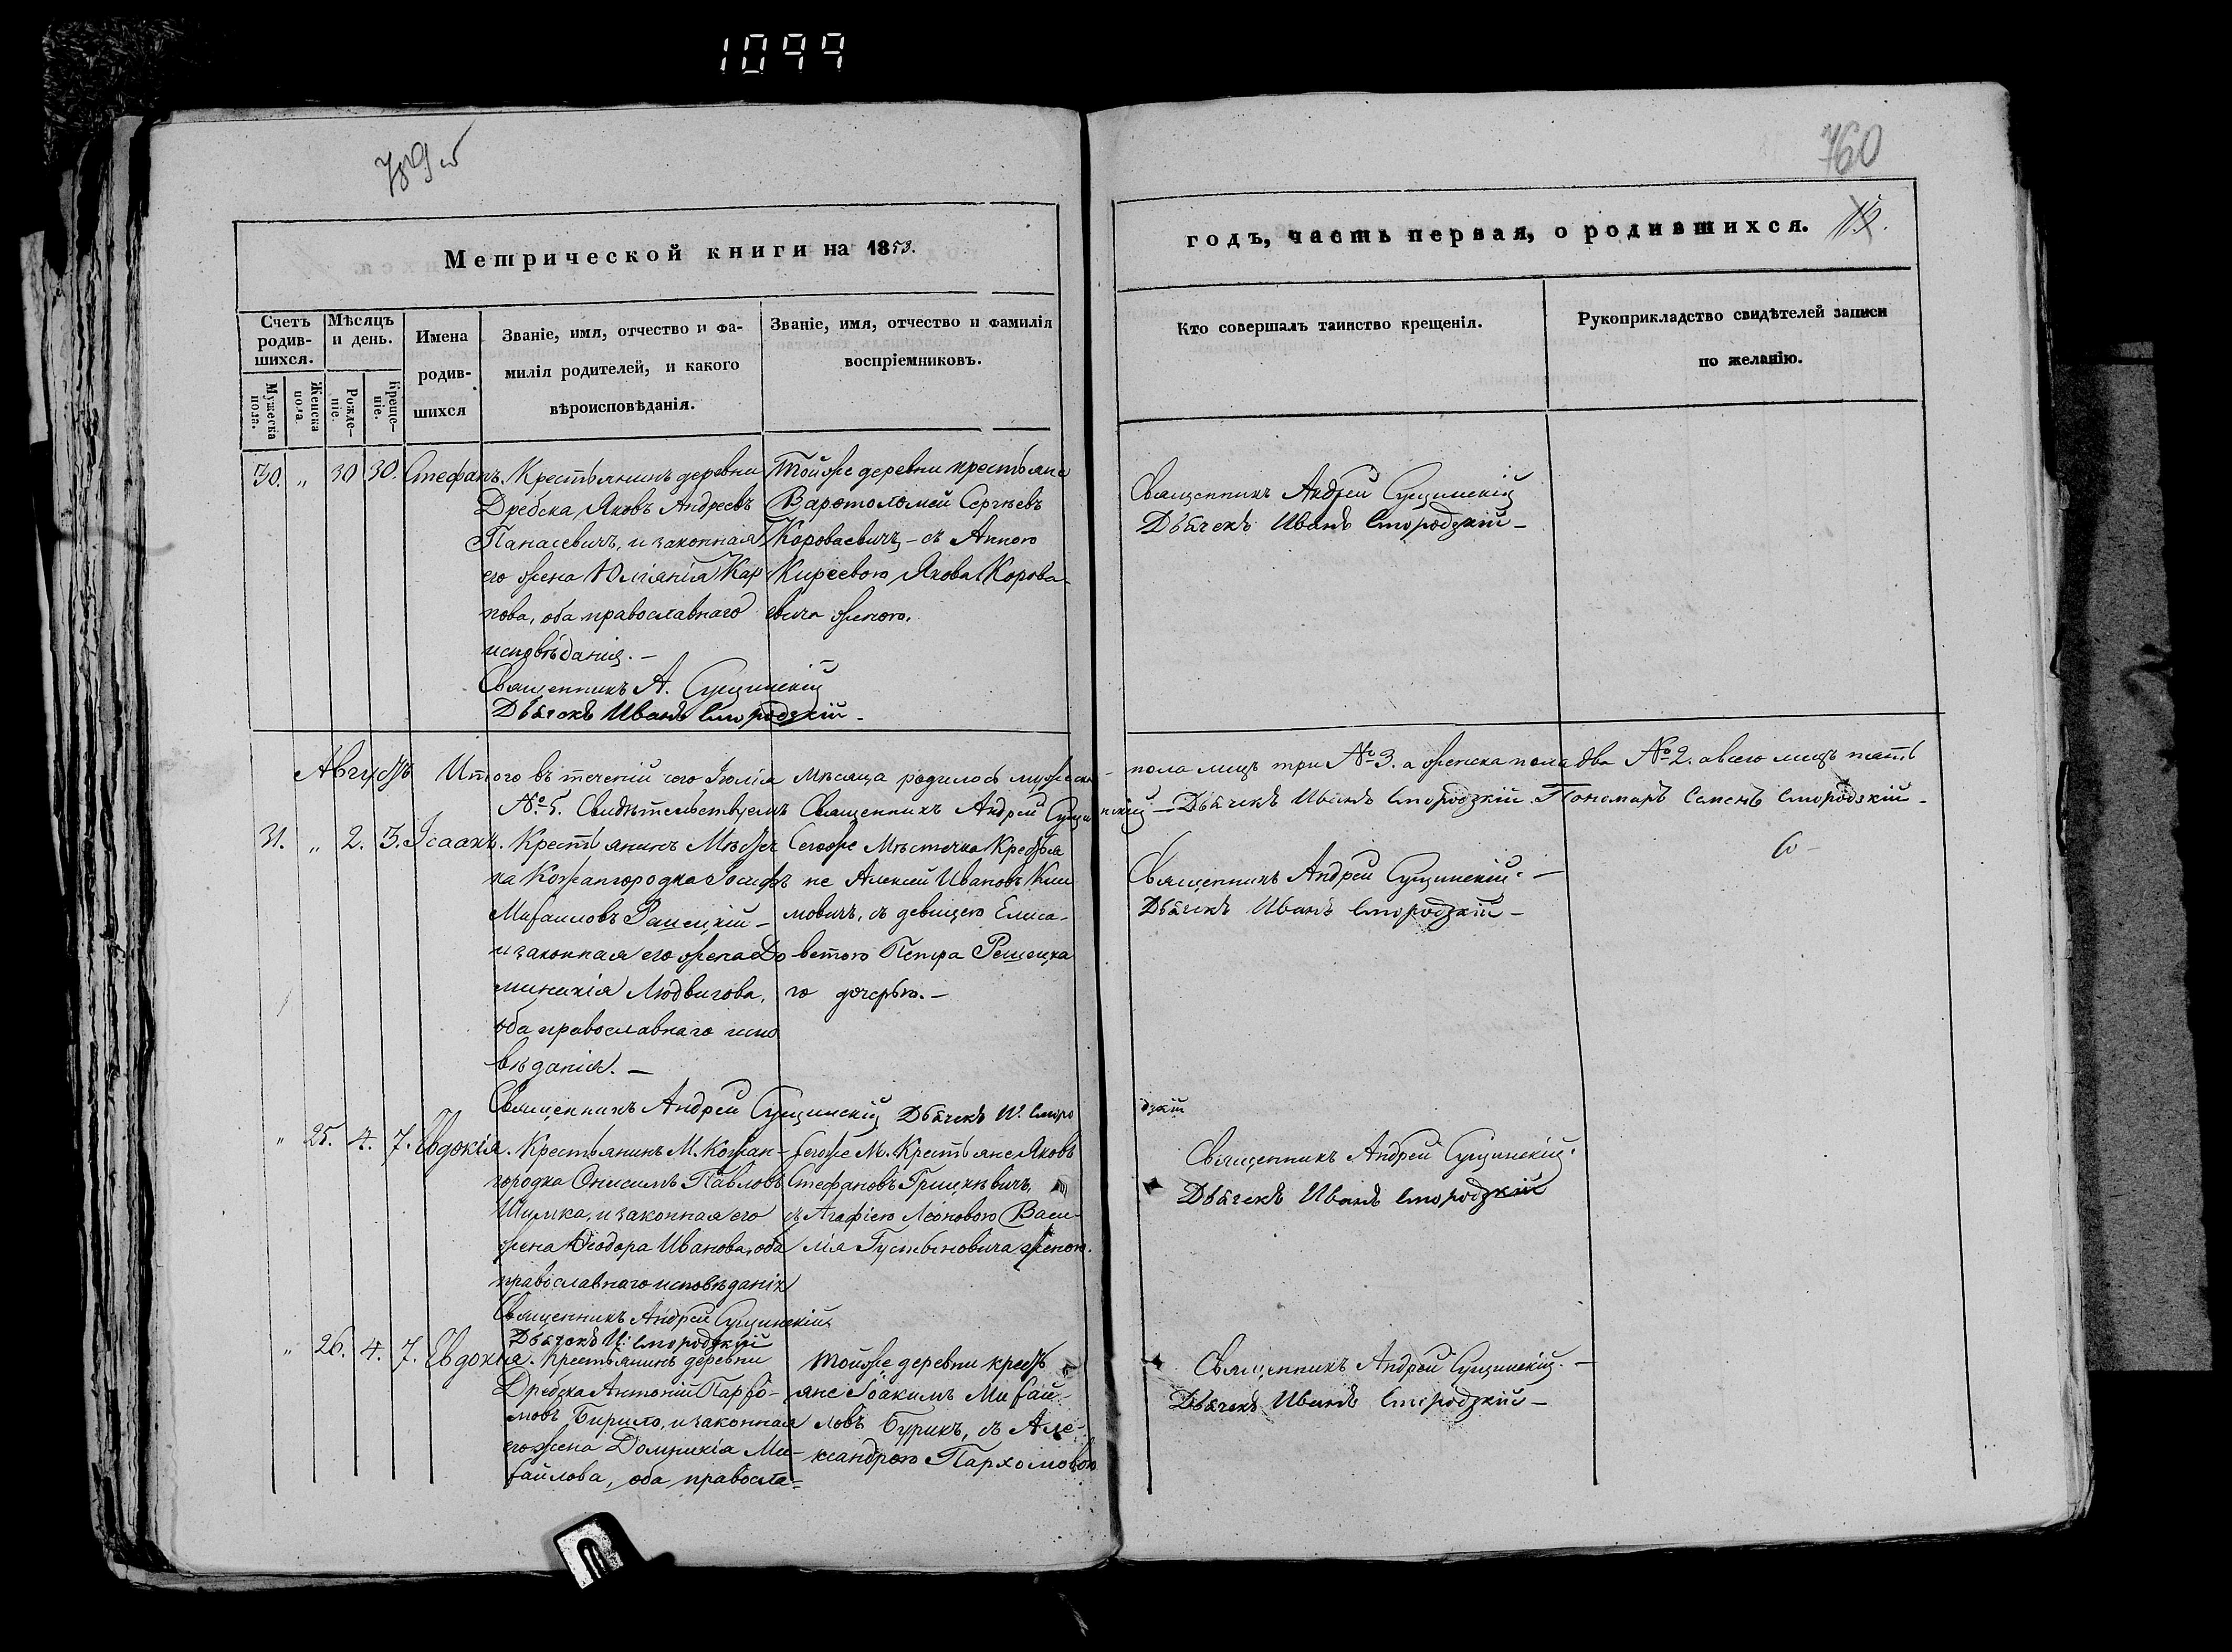 1099
760
Метрической книги на 1853.
годъ, часть первая, о родившихся.
Счетъ родив-шихся.
Мужеска пола.
Женска пола.
Мѣсяцъ и день.
Рожде-ніе.
Креще-ніе.
Имена
родив-
шихся
Званіе, имя, отчество и фа-
милія родителей, и какого
вѣроисповѣданія.
Званіе, имя, отчество и фамилія
воспріемниковъ.
Кто совершалъ таинство крещенія.
Рукоприкладство свидѣтелей записи
по желанію.
30. „ 30 30. Стефанъ.
Крестьянинъ деревни
Дребска, Яковъ Андреевъ
Панасевичъ, и законная
его жена Юліянія Кар
пова, оба православнаго
исповѣданія. —
Священникъ А. Сущинскій
Дьячекъ Иванъ Смородзкій —
Тойже деревни крестьяне
Варфоломей Сергѣевъ
Короваевичъ – съ Анною
Киреевою Якова Корова-
евича женою.
Священникъ Андрей Сущинскій
Дьячекъ Иванъ Смородзкій —
Августъ Итого въ теченіи сего Іюля мѣсяца родилось мужеска - пола лицъ три № 3. а женска пола два № 2. а всего лицъ пять
№ 5. Свидѣтельствуемъ Священникъ Андрей Сущинскій — Дьячекъ Иванъ Смородзкій. Пономарь Семенъ Смородзкій -
31. „ 2. 3. Исаакъ.
Крестьянинъ Мѣстеч
ка Кожангородка Іосифъ
Михаиловъ Рашецкій —
и законная его жена До
миникія Людвигова,
оба православнаго испо
вѣданія. —
Священникъ Андрей Сущинскій Дьячекъ И. Смородзкій
Сегоже Мѣстечка Крестья
не Алексей Ивановъ Кли
мовичъ, съ девицею Елиса-
ветою Петра Решецка
го дочерью. —
Священникъ Андрей Сущинскій. —
Дьячекъ Иванъ Смородзкій —
„ 25. 4. 7. Евдокія.
Крестьянинъ М. Кожан-
городка Онисимъ Павловъ
Шимка, и законная его
жена Ѳеодора Иванова, оба
православнаго исповѣданія
Священникъ Андрей Сущинскій
Дьячекъ И: Смородзкій
Сегоже М. Крестьяне Яковъ
Стефановъ Грицкевичъ,
съ Агафіею Леоновою Васи-
лія Густыновича женою.
Священникъ Андрей Сущинскій.
Дьячекъ Иванъ Смородзкій
„ 26. 4. 7. Евдокія.
Крестьянинъ деревни
Дребска Антоній Парфо-
мовъ Бирило, и законная
его жена Домникія Ми-
хайлова, оба правосла-
Тойже деревни кресть
яне Іоакимъ Михай-
ловъ Бурикъ, съ Але-
ксандрою Пархомовою
Священникъ Андрей Сущинскій. —
Дьячекъ Иванъ Смородзкій —